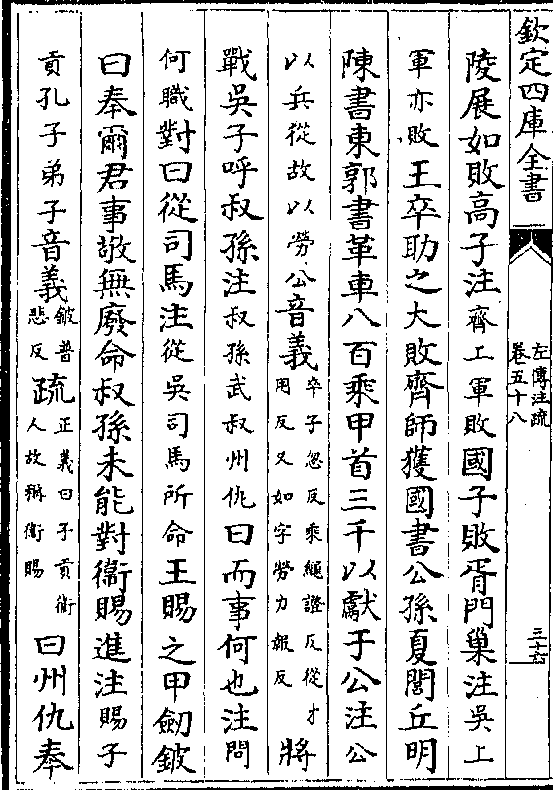 欽定四庫全書
左傳注疏
卷五十八
三十六
陵展如敗高子注齊上軍敗國子敗胥門巢注吳上
軍亦敗王卒助之大敗齊師獲國書公孫夏閭丘明
陳書東郭書革車八百乘甲首三千以獻于公注公
以兵從故以勞公音義卒子忽反乘繩證反從才
用反又如字勞力報反將
戰吳子呼叔孫注叔孫武叔州仇曰而事何也注問
何職對曰從司馬注從吳司馬所命王賜之甲劒鈹
曰奉爾君事敬無廢命叔孫未能對衞賜進注賜子
貢孔子弟子音義鈹普
悲反疏正義曰子貢衞
人故稱衞賜曰州仇奉